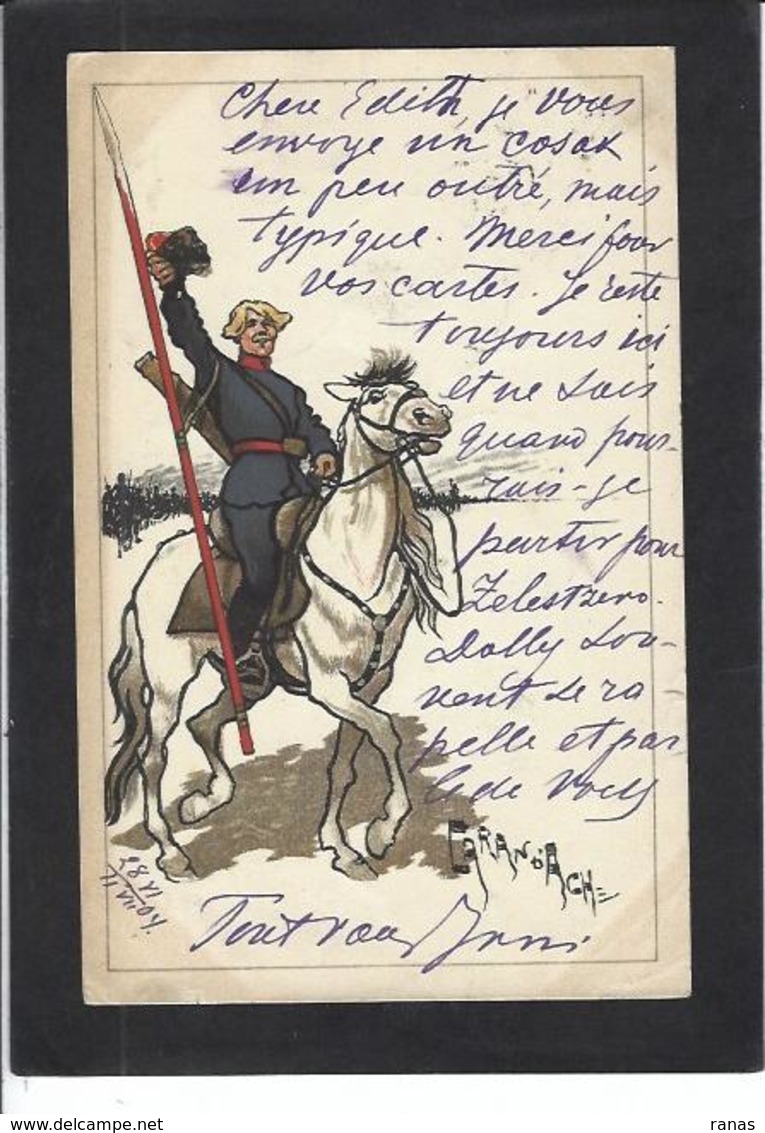 Chere Edith, je vous
envoye un cosak
un peu outré, mais
typique. Merci pour
vos cartes. Je reste
toujours ici
et ne sais
quand pour-
rais-je
partir pour
Zelestzero.
Dolly sou-
vent se ra
pelle et par
le de vous
CARAN D'ACHE
28 VI
11 VII 04.
Tout vous
ranas
www.delcampe.net